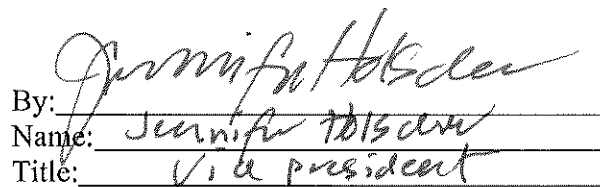 By: Jennifer Holsclaw
Name: Jennifer Holsclaw
Title: Vice president